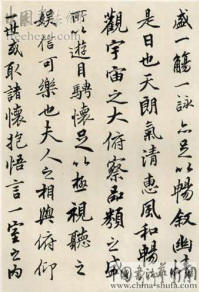 盛一觴一詠亦足以暢敘幽
是日也天朗氣清惠風和暢
觀宇宙之大俯察品類之盛
所以遊目騁懷足以極視聽之
娛信可樂也夫人之相與俯仰
一世或取諸懷抱悟言一室之內
www.china-shufa.com